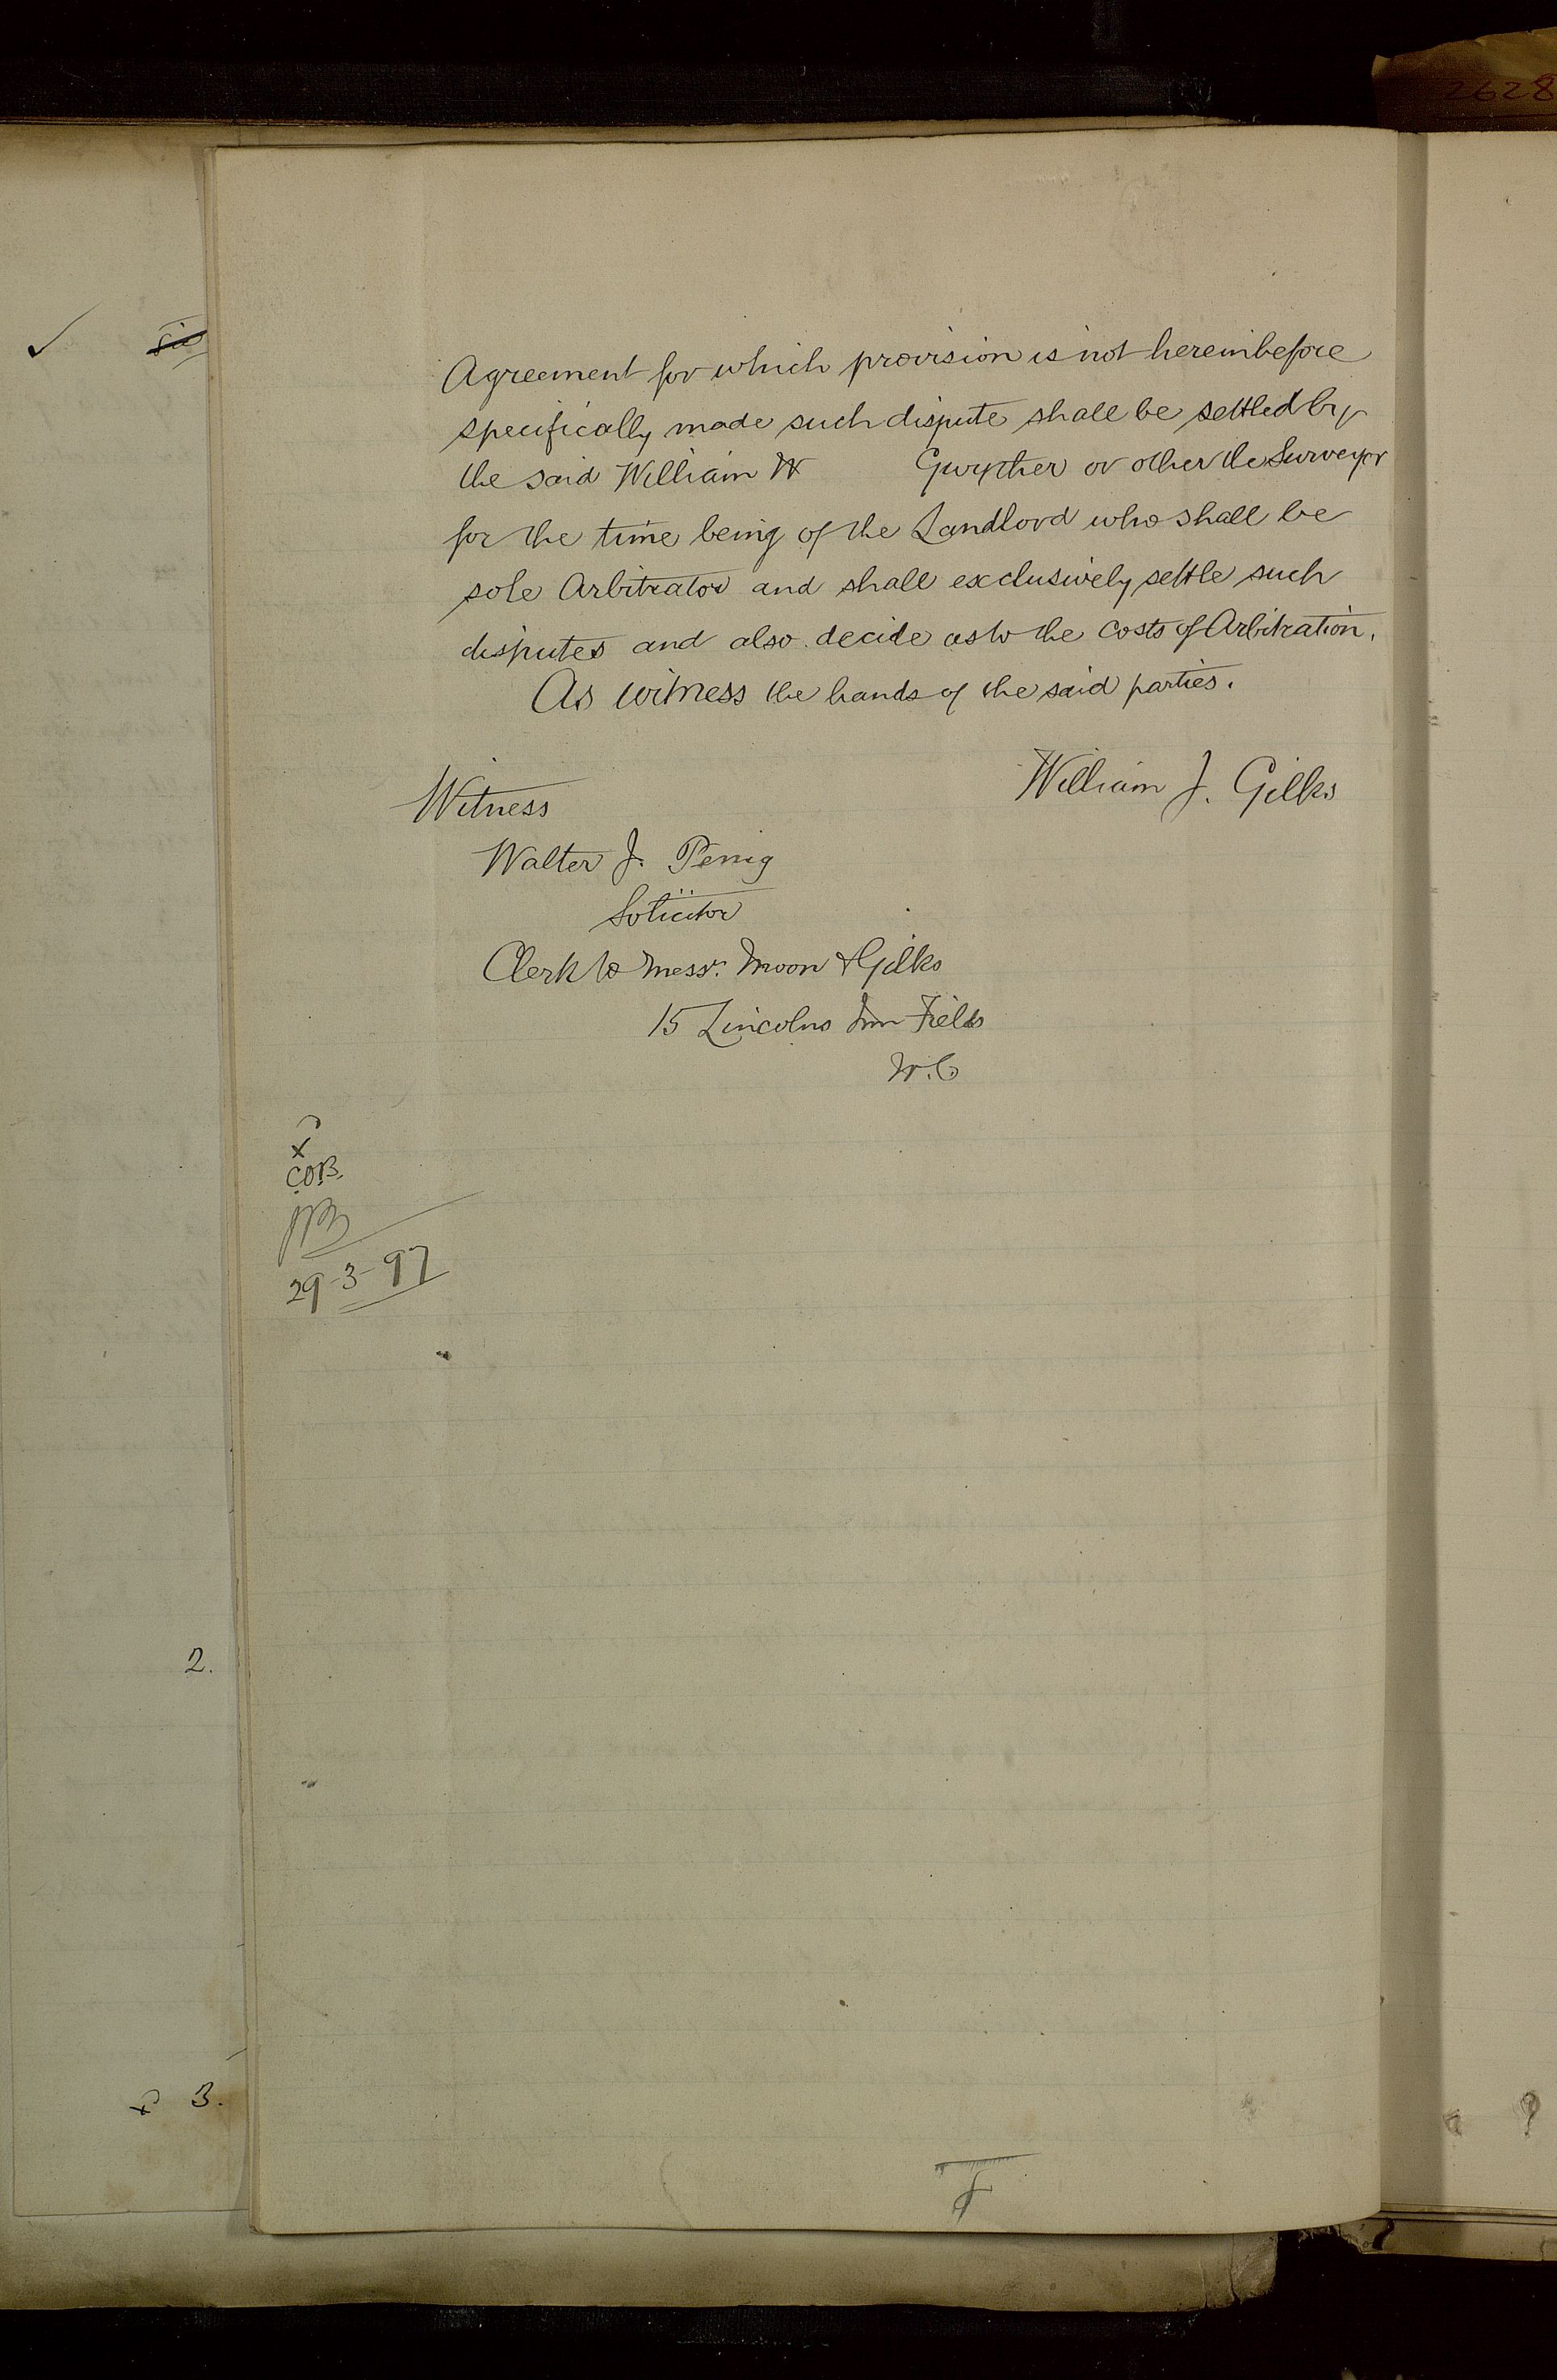 2628
sic
Agreement for which provision is not hereinbefore
specifically made such dispute shall be settled by
the said William W Gwyther or other the Surveyor
for the time being of the Landlord who shall be
sole Arbitrator and shall exclusively settle such
disputes and also decide as to the costs of Arbitration.
As witness the hands of the said parties.
William J. Gilks
Witness
Walter J.
Solicitor
Clerk to Messrs. Moon & Gilks
15 Lincolns Inn Fields
W.C.
x
COB.
29-3-97
2.
x 3.